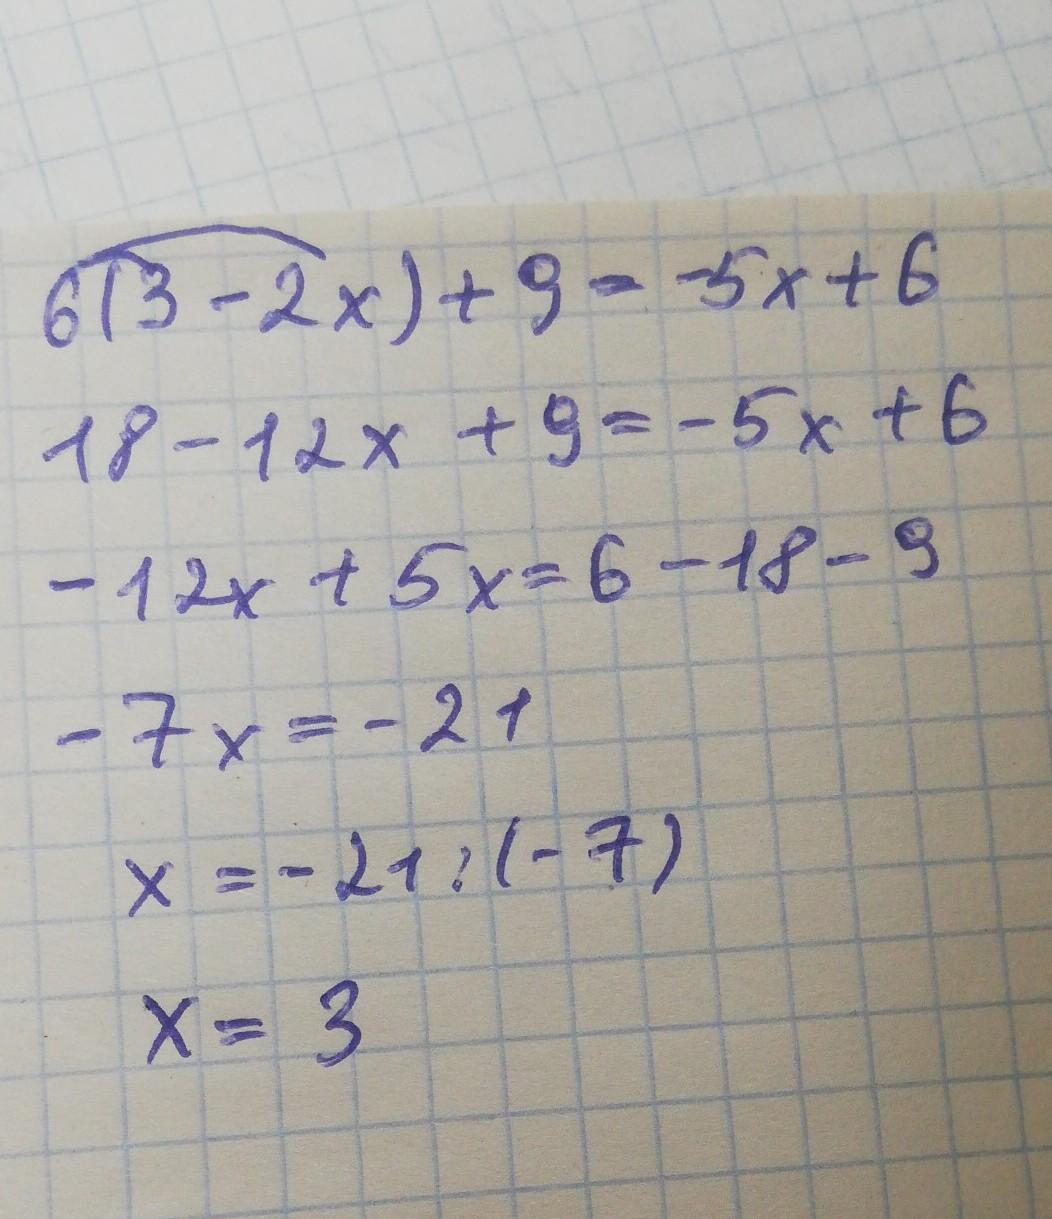 6(3-2x)+9=-5x+6
18-12x+9=-5x+6
-12x+5x=6-18-9
-7x=-21
x=-21:(-7)
x=3